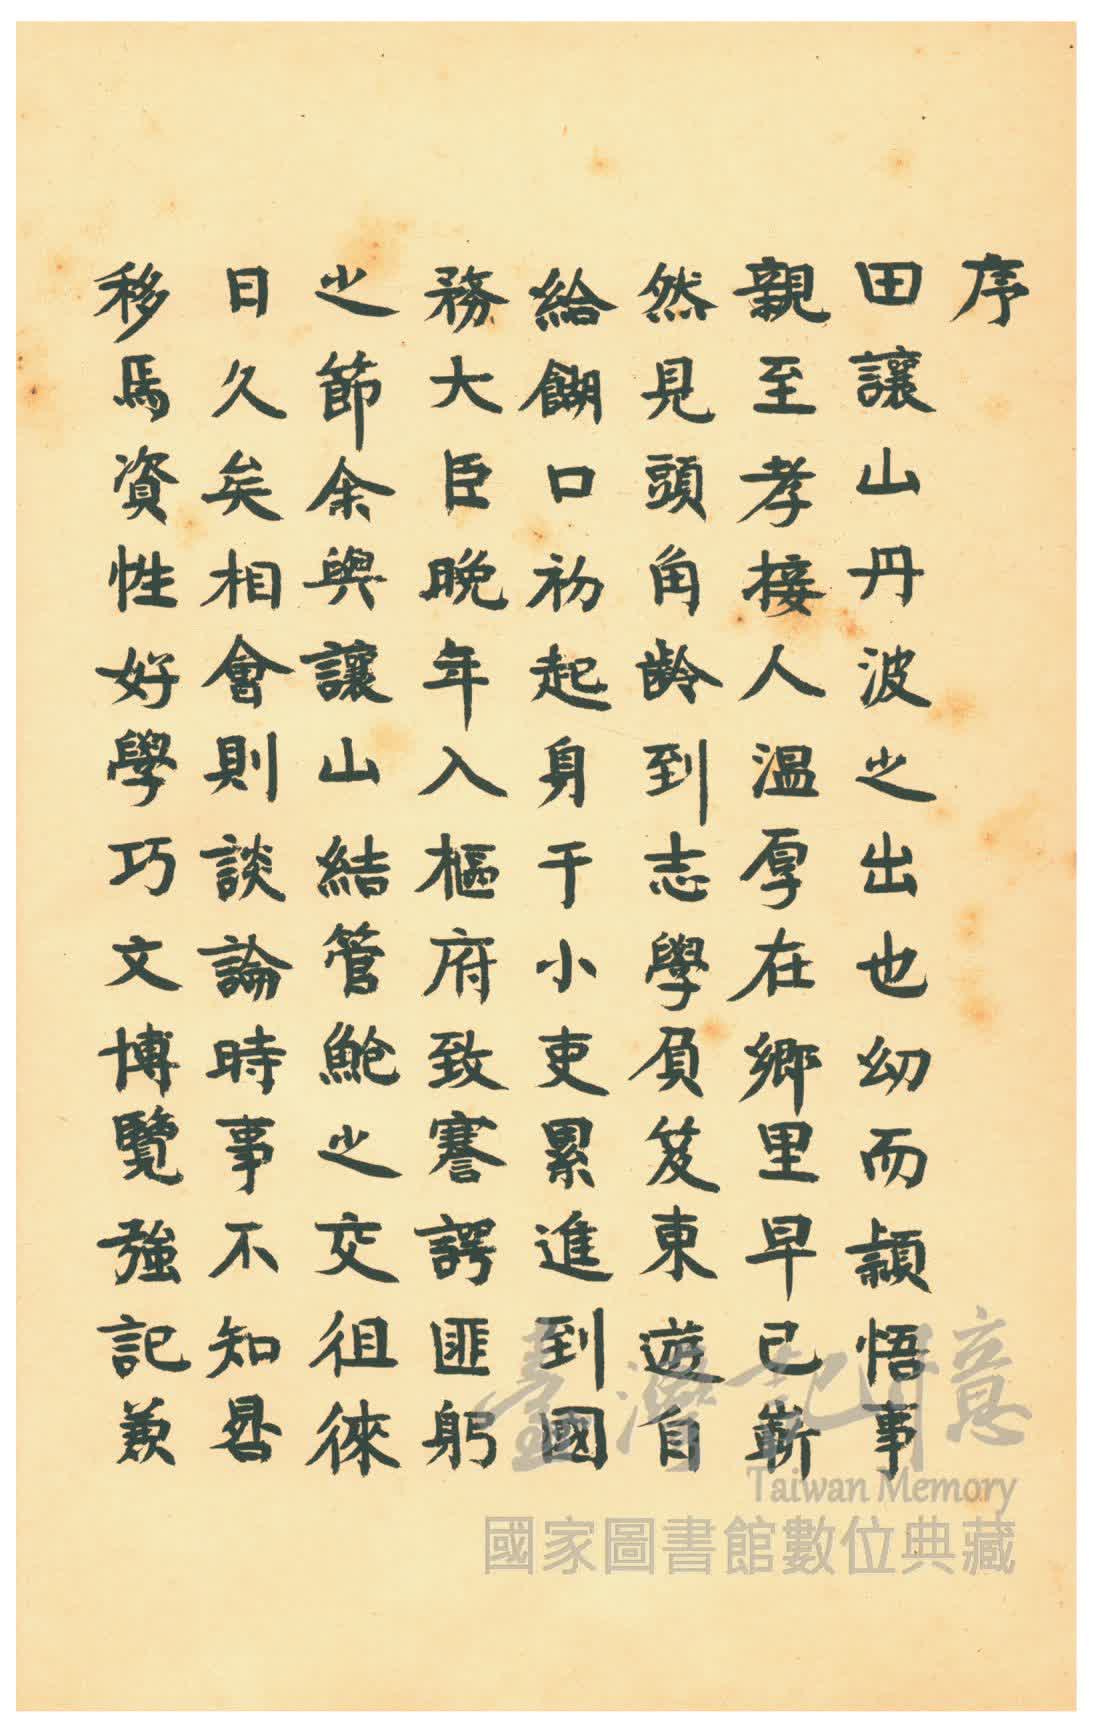 序
田讓山丹波之出也幼而穎悟事
親至孝接人温厚在鄉里早已嶄
然見頭角齡到志學負笈東遊自
給餬口初起身于小吏累進到國
務大臣晚年入樞府致謇諤匪躬
之節余與讓山結管鮑之交徂徠
日久矣相會則談論時事不知晷
移焉資性好學巧文博覽強記兼
臺灣記憶
Taiwan Memory
國家圖書館數位典藏